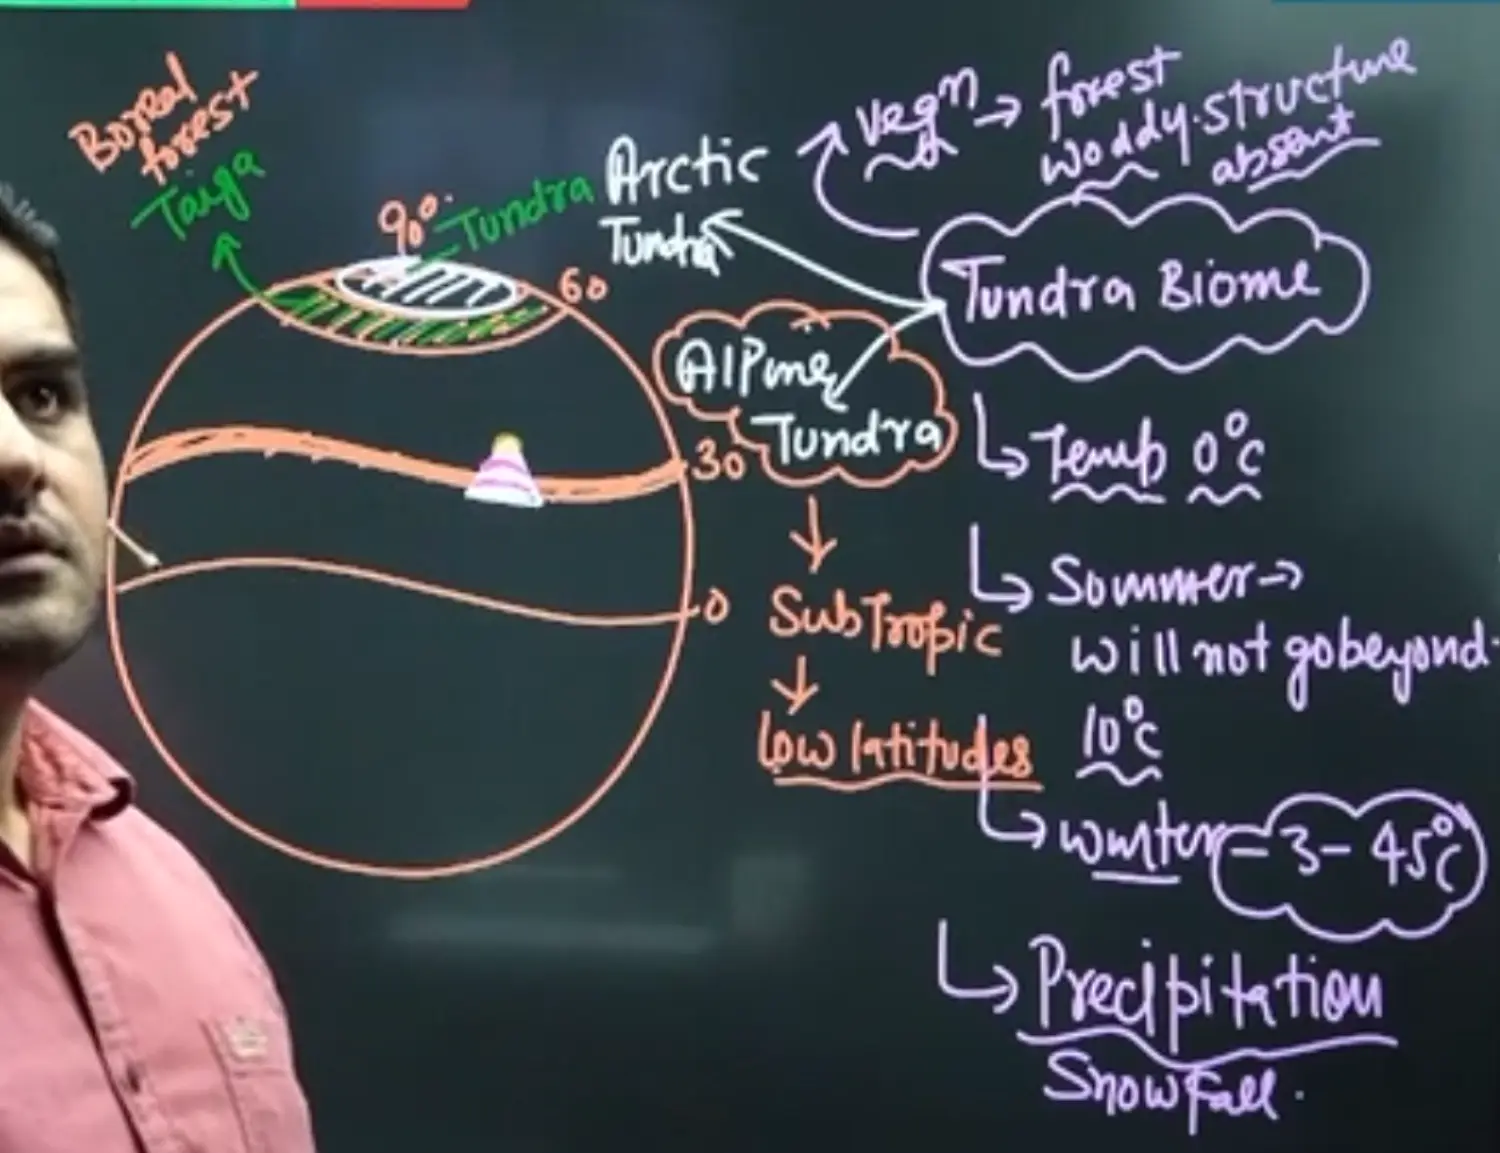 Boreal
forest
Taiga
90°
Tundra
60
30
0
Arctic
Tundra
Alpine
Tundra
SubTropic
Low latitudes
Vegn → forest
woddy structure
absent
Tundra Biome
Temp 0°c
Sommer →
will not gobeyond
10°c
Winter - 3 - 45°c
Precipitation
Snowfall.